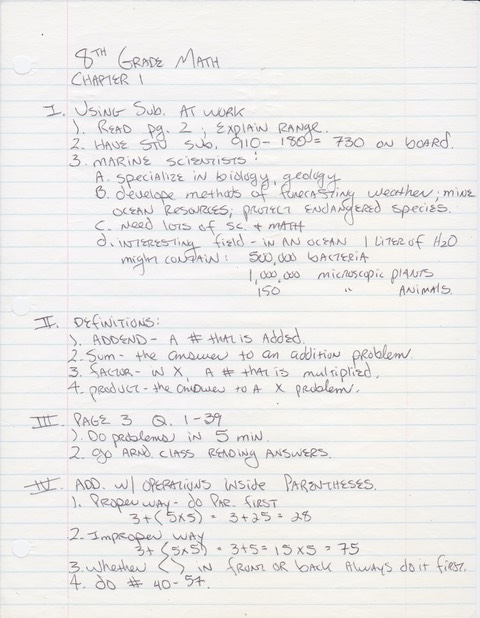 8TH GRADE MATH
CHAPTER 1
I. USING SUB. AT WORK
1. READ pg. 2 ; EXPLAIN RANGE.
2. HAVE STU SUB. 910-180 = 730 ON BOARD.
3. MARINE SCIENTISTS:
A. specialize in biology, geology
B. develope methods of forecasting weather; mine
OCEAN RESOURCES; PROTECT ENDANGERED SPECIES.
C. NEED LOTS OF SC. + MATH
d. INTERESTING field - IN AN OCEAN 1 LITER OF H2O
might CONTAIN: 500,000 BACTERIA
1,000,000 microscopic PLANTS
150 " ANIMALS.
II. DEFINITIONS:
1. ADDEND - A # THAT IS ADDED.
2. SUM - the answer to an addition problem.
3. FACTOR - IN X, A # that is multiplied.
4. PRODUCT - the answer to A X problem.
III. PAGE 3 Q. 1-39
1. Do problems in 5 min.
2. go ARND CLASS READING ANSWERS.
IV. ADD. W/ OPERATIONS INSIDE PARENTHESES.
1. Proper way - do PAR. FIRST
3+(5x5) = 3+25 = 28
2. Improper way
3+(5x5) = 3+5= 15x5 = 75
3. Whether ( ) in front OR back Always do it first.
4. do # 40-54.